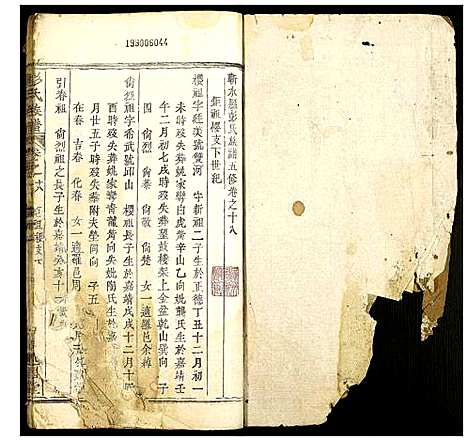 193006044
蘄水縣彭氏族譜五修卷之十八
鉅祖櫻支下世紀
櫻祖字經美號雙河 字新祖二子生於正德丁丑十二月初一
未時歿失葬姚家彎白虎嘴辛山乙向妣龔氏生於嘉靖壬
午二月初七戌時歿失葬望鼓樓架上金盆乾山巽向 子
四 尙烈 尙榮 尙敬 尙楚 女一適羅邑余
尙烈祖字希武號邱山 櫻祖長子生於嘉靖戊戌十二月十
酉時歿失葬姚家彎青龍嘴向失妣陶氏生於嘉靖
月廿五子時歿失葬附夫塋同向 子五
在春 吉春 化春 女一適羅邑周
引春祖 尙烈祖之長子生於嘉靖癸亥十
彭氏族譜 卷之十八